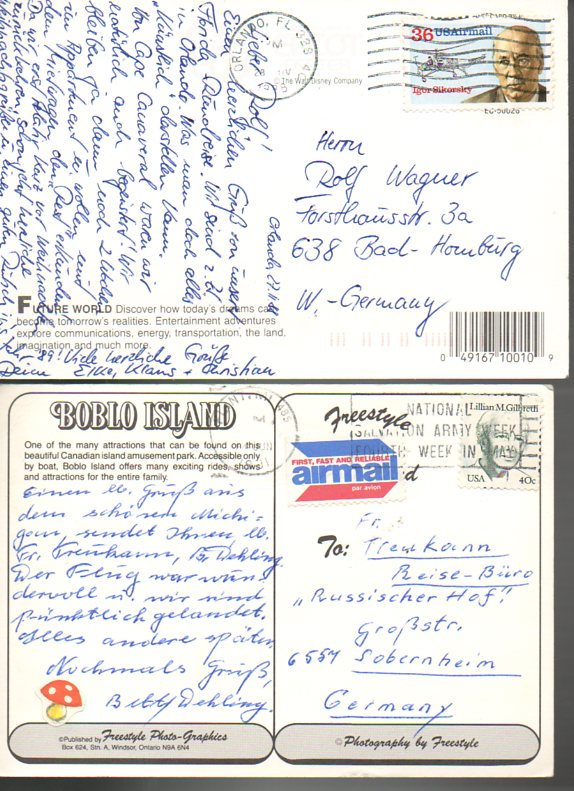 ORLANDO, FL 328
36 USAirmail
Igor Sikorsky
© The Walt Disney Company
Lieber Rolf!
Einen herzlichen Gruß von unserer
Florida Rundreise. Wir sind z. Zt
in Orlando. Was man doch alles
"künstlich" darstellen kann.
Von Cape Canaveral waren wir
natürlich auch begeistert! Wir
bleiben dann noch 2 Wochen
im Appartment u. wollen mit
dem den Rest erkunden
Da wir erst kurz vor Weihnachten
zurückkehren, schon jetzt herzliche
Weihnachtsgrüße u. einen guten Rutsch ins
Jahr 89! Viele herzliche Grüße
Deine Elke, Klaus + Christian
Orlando
Herrn
Rolf Wagner
Forsthausstr. 3a
638 Bad-Homburg
W.-Germany
FUTURE WORLD Discover how today's dreams can
become tomorrow's realities. Entertainment adventures
explore communications, energy, transportation, the land,
imagination and much more.
0 49167 10010 9
BOBLO ISLAND
One of the many attractions that can be found on this
beautiful Canadian island amusement park. Accessible only
by boat, Boblo Island offers many exciting rides, shows
and attractions for the entire family.
Einen lb. Gruß aus
dem schönen Michi=
gan, sendet Ihnen, lb.
Fr. Treukann, Dehling.
Der Flug war wun=
dervoll u. wir sind
pünktlich gelandet.
Alles andere später.
Nochmals Gruß,
Betty Dehling.
©Published by Freestyle Photo-Graphics
Box 624, Stn. A, Windsor, Ontario N9A 6N4
Freestyle
NATIONAL
SALVATION ARMY WEEK
FOURTH WEEK IN MAY
Lillian M. Gilbreth
USA 40c
FIRST, FAST AND RELIABLE
airmail
par avion
Fr.
To: Treukann
Reise-Büro
"Russischer Hof"
Großstr.
6554 Sobernheim
Germany
©Photography by Freestyle